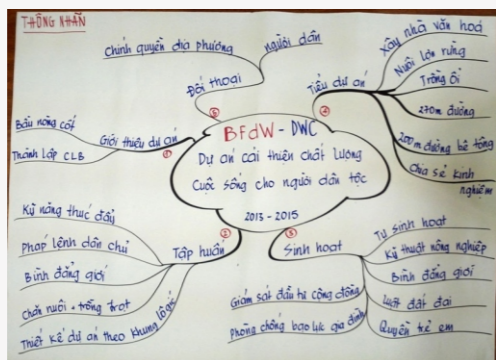 THÔNG NHÃN
BFdW - DWC
Dự án cải thiện chất lượng
Cuộc sống cho người dân tộc
2013 - 2015
① Giới thiệu dự án
Bầu nòng cốt
Thành lập CLB
② Tập huấn
Kỹ năng thúc đẩy
Pháp lệnh dân chủ
Bình đẳng giới
Chăn nuôi + trồng trọt
Thiết kế dự án theo khung lô gíc
③ Sinh hoạt
Tự sinh hoạt
Kỹ thuật nông nghiệp
Bình đẳng giới
Luật đất đai
Quyền trẻ em
Giám sát đầu tư cộng đồng
Phòng chống bạo lực gia đình
④ Tiểu dự án
Xây nhà văn hoá
Nuôi lợn rừng
Trồng ổi
270m đường
200m đường bê tông
Chia sẻ kinh nghiệm
⑤ Đối thoại
Chính quyền địa phương
người dân